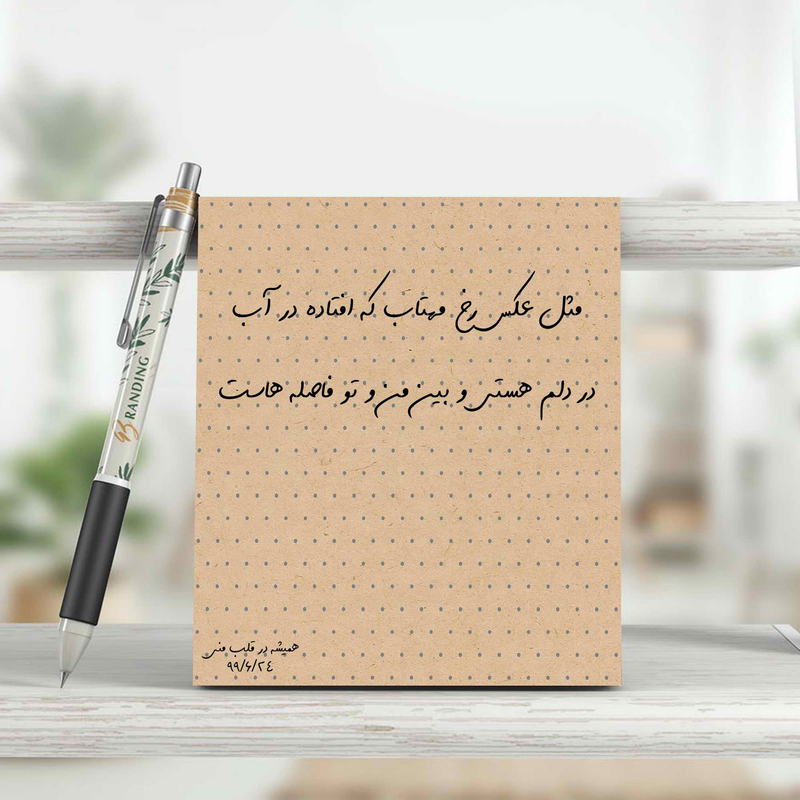 مثل عکس رخ مهتاب که افتاده در آب
در دلم هستی و بین من و تو فاصله هاست
همیشه در قلب منی
۹۹/۶/۲٤
BRANDING